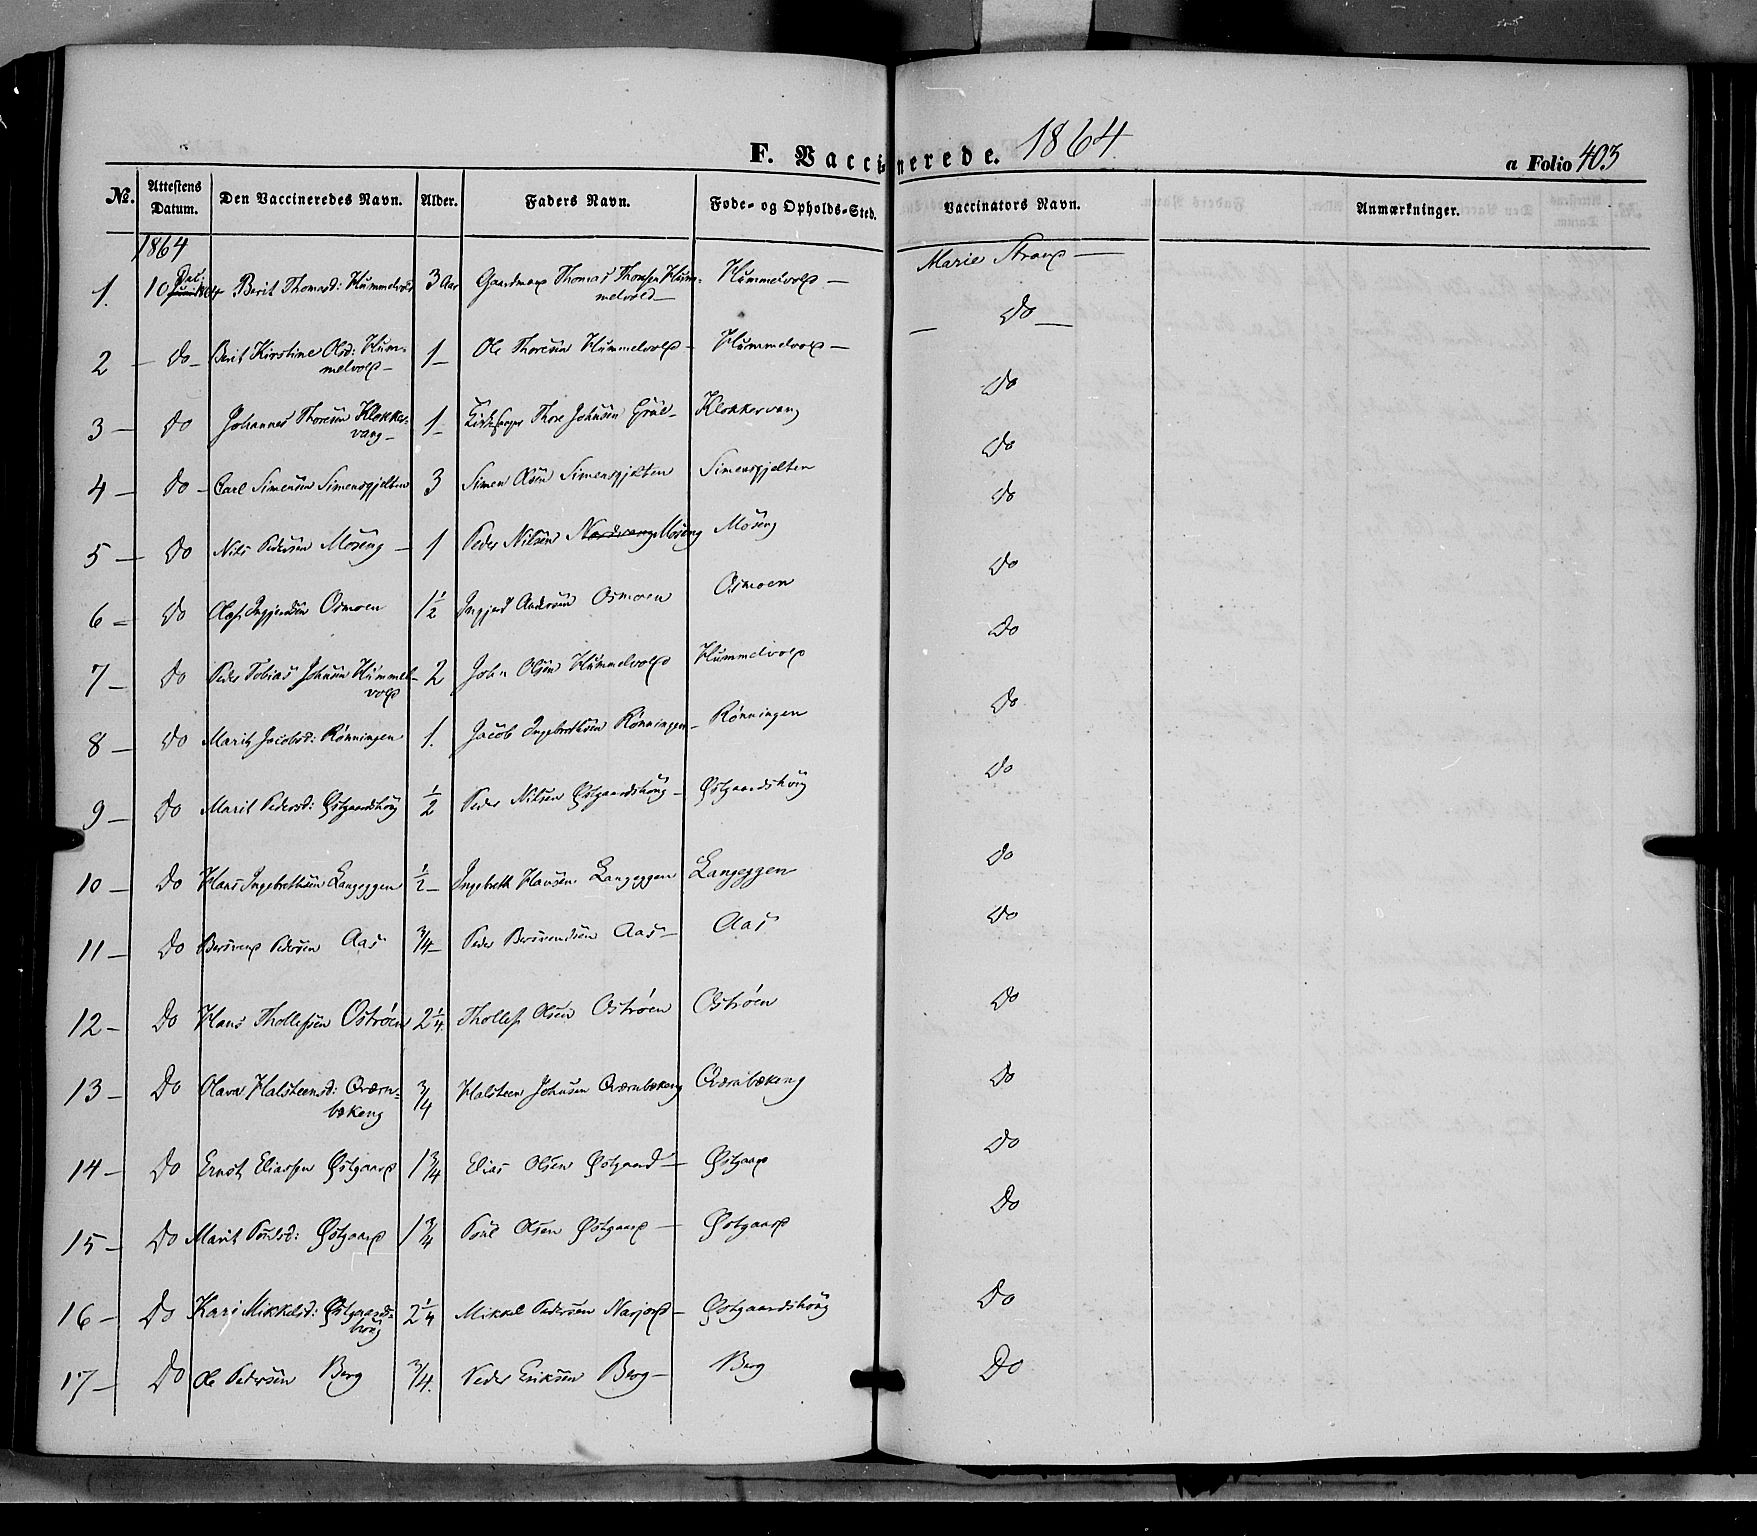 F. Vaccinerede. 1864
a Folio 403
No. Attestens Datum. Den Vaccineredes Navn. Alder. Faders Navn. Føde- og Opholds-Sted. Vaccinators Navn. Anmærkninger.
1864
1. 10 Berit Thomasd: Hummelvold 3 Aar Gaardmand Thomas Thomsen Hum- Hummelvold — Marie
melvold —
2 — Do — Berit Kirstine Olsd: Hum- 1 — Ole Thoresen Hummelvold — Hummelvold — Do —
melvold —
3 — Do Johannes Thoresen Klokker- 1 — Kirkesanger Thore Johnsen Klokkervang Do
vang —
4 — Do — Carl Simensen Simensgjelten 3 Simen Olsen Simensgjelten Simensgjelten Do
5 — Do Nils Pedersen Moseng — 1 Peder Nilsen Nordvang Moseng Moseng Do
6 — Do Ingjerdsen Osmoen 1 1/2 Andersen Osmoen Osmoen Do
7 — Do Peder Tobias Johnsen Hummel- 2 John Olsen Hummelvold Hummelvold Do
vold
8 — Do Marit Jacobsd: Rønningen 1. Jacob Ingebrethsen Rønningen — Rønningen Do
9 — Do Marit Pedersd: Østgaardshøug 1/2 Peder Nilsen Østgaardshøug — Østgaardshøug Do
10 — Do Hans Ingebrethsen Langeggen 1/2 — Ingebreth Hansen Langeggen Langeggen Do
11 — Do Bersvend Pedersen Aas 3/4 — Peder Bersvendsen Aas — Aas Do
12 — Do Hans Thollefsen Ostrøen 2 1/4. Thollef Olsen Ostrøen Ostrøen Do
13 — Do Olava Halsteensd: Qværn- 3/4 Halsteen Johnsen Qværnbækeng Qværnbækeng Do
bækeng
14 — Do Ernst Eliassen Østgaard 1 3/4 Elias Olsen Østgaard — Østgaard Do
15 — Do Marit Poulsd: Østgaard 1 3/4 Poul Olsen Østgaard — Østgaard Do
16 — Do Kari Mikkelsd: Østgaards- 2 1/4 Mikkel Pedersen Nasjord — Østgaardshøug Do
høug
17 — Do Ole Pedersen Berg 3/4. Peder Eriksen Berg — Berg Do